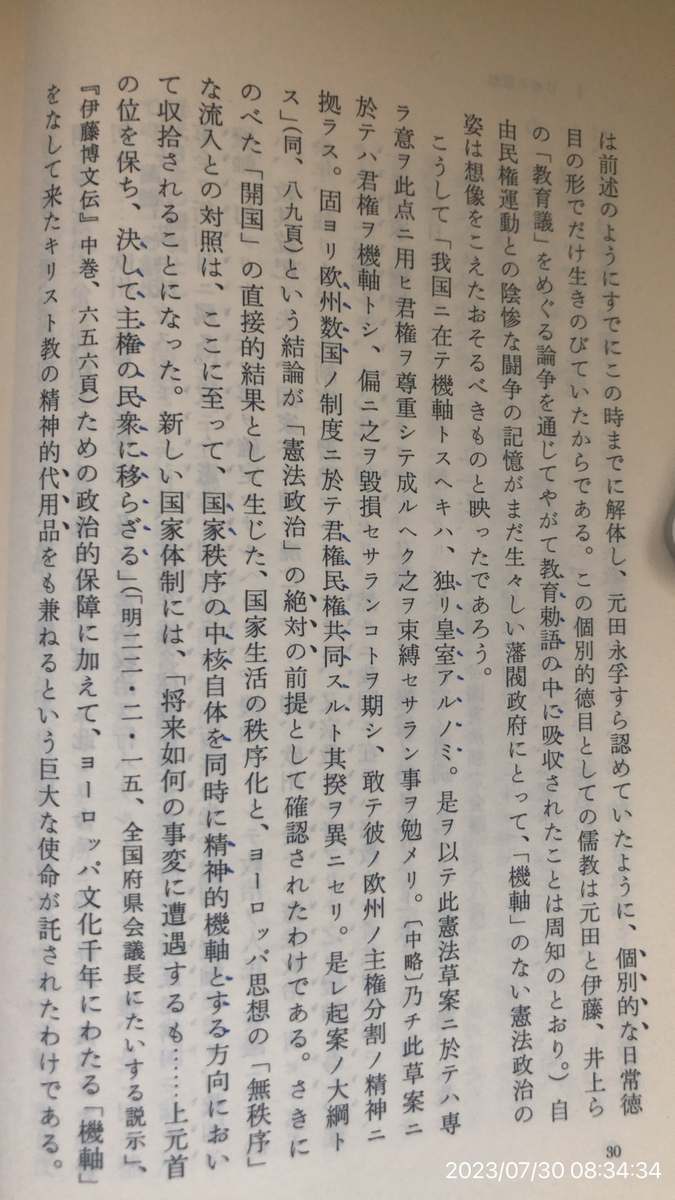 は前述のようにすでにこの時までに解体し、元田永孚すら認めていたように、個別的な日常徳
目の形でだけ生きのびていたからである。この個別的徳目としての儒教は元田と伊藤、井上ら
の「教育議」をめぐる論争を通じてやがて教育勅語の中に吸収されたことは周知のとおり。）自
由民権運動との陰惨な闘争の記憶がまだ生々しい藩閥政府にとって、「機軸」のない憲法政治の
姿は想像をこえたおそるべきものと映ったであろう。
こうして「我国ニ在テ機軸トスヘキハ、独リ皇室アルノミ。是ヲ以テ此憲法草案ニ於テハ専
ラ意ヲ此点ニ用ヒ君権ヲ尊重シテ成ルヘク之ヲ束縛セサラン事ヲ勉メリ。〔中略〕乃チ此草案ニ
於テハ君権ヲ機軸トシ、偏ニ之ヲ毀損セサランコトヲ期シ、敢テ彼ノ欧州ノ主権分割ノ精神ニ
拠ラス。固ヨリ欧州数国ノ制度ニ於テ君権民権共同スルト其揆ヲ異ニセリ。是レ起案ノ大綱ト
ス」（同、八九頁）という結論が「憲法政治」の絶対の前提として確認されたわけである。さきに
のべた「開国」の直接的結果として生じた、国家生活の秩序化と、ヨーロッパ思想の「無秩序」
な流入との対照は、ここに至って、国家秩序の中核自体を同時に精神的機軸とする方向におい
て収拾されることになった。新しい国家体制には、「将来如何の事変に遭遇するも……上元首
の位を保ち、決して主権の民衆に移らざる」（「明二二・二・一五、全国府県会議長にたいする説示」、
『伊藤博文伝』中巻、六五六頁）ための政治的保障に加えて、ヨーロッパ文化千年にわたる「機軸」
をなして来たキリスト教の精神的代用品をも兼ねるという巨大な使命が託されたわけである。
30
2023/07/30 08:34:34